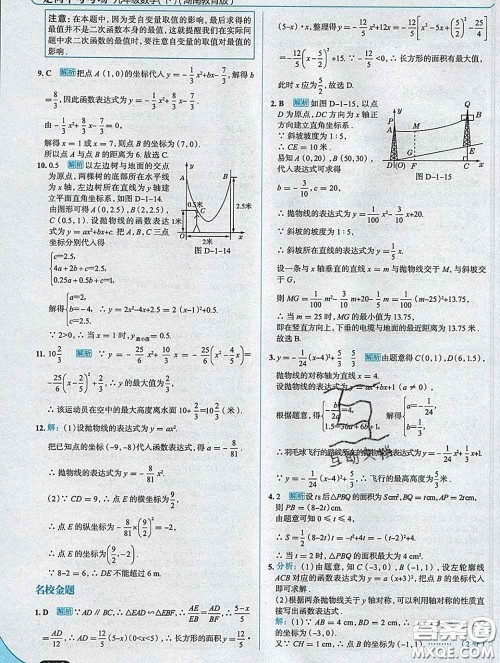 注意:在本题中,因为受自变量取值的影响,最后求得的最值并不是二次函数本身的最值,这就提醒我们在实际问题中求二次函数的最值时,要注意自变量的取值对最值的影响.
9. C 解析 把点 A (1,0)的坐标代入 y=-1/3x²+bx-7/3,得 b=
8/3,因此函数表达式为 y=-1/3x²+8/3x-7/3.
由 0=-1/3x²+8/3x-7/3,
解得 x=1 或 x=7,则点 B 的坐标为(7,0).
所以点 A 与点 B 的距离为 6. 故选 C.
10. 0.5 解析 以左边树与地面的交点
为原点,两棵树的底部所在水平线
为 x 轴,左边树所在直线为 y 轴建
立平面直角坐标系,如图 D-1-14.
由图形可得 A (0,2.5),B(2,2.5),
C(0.5,1). 设抛物线的函数表达
式为 y=ax²+bx+c. 把 A,B,C 三点
坐标分别代入得
c=2.5,
4a+2b+c=2.5,
0.25a+0.5b+c=1.
解得 a=2, b=-4, c=2.5. ∴ y=2x²-4x+2.5=2(x-1)²+0.5.
∵ 2>0,∴ 当 x=1 时,y最小值=0.5(米).
0.5米
2.5米
2米
图 D-1-14
11. 10 2/3 解析 ∵ y=-25/6x²+10/3x=-25/6(x²-4/5x)=
-25/6(x-2/5)²+2/3,∴ y 的最大值为2/3.
∴ 该运动员在空中的最大高度离水面 10+2/3=10 2/3(米).
12. 解:(1)设抛物线的表达式为 y=ax².
把已知点的坐标(-9,-8)代入函数表达式,得 a=-8/81.
∴ 抛物线的表达式为 y=-8/81x².
(2)∵ CD=9,∴ 点 E 的横坐标为9/2.
∴ 点 E 的纵坐标为-8/81×(9/2)²=-2.
∴ 点 E 的坐标为(9/2,-2).
∵ 8-2=6,∴ DE 不能超过 6 m.
名校金题
1. D 解析 ∵ AD // BC,∴ △AEB∽△DEF,∴ AE/EB=AD/BF,∴ (5-x)/5
=AD/12,
(5-x)·x,整理得 S=-12/5x²+12x=-12/5(x-5/2)²+15(0<x<5).
∵ -12/5<0,∴ 长方形的面积有最大值,
此时 x 应为5/2,故选 D.
2. B 解析 如图 D-1-15,以点
D 为原点,DC 方向为 x 轴正
方向建立直角坐标系.
∵ 斜坡的坡度为 1:5,
∴ CE=10 米.
易知 A(20),B(50,30),
代入表达式可求得
b=-3/10,
c=20.
图 D-1-15
∴ 抛物线的表达式为 y=1/100x²-3/10x+20.
∵ 斜坡的坡度为 1:5,
∴ 斜坡所在直线的表达式为 y=1/5x.
设一条与 x 轴垂直的直线 x=m 与抛物线交于 M,与斜坡交于 G,
则 MG=1/100m²-3/10m+20-1/5m=1/100(m-25)²+13.75,
∴ 当 m=25 时,MG 的最小值为 13.75,
即在竖直方向上,下垂的电缆与地面的最近距离为 13.75 米.
故选 B.
3. y=-1/24(x-4)²+5/3 5/3 解析 由题意得 C(0,1),D(6,1.5),
抛物线的对称轴为直线 x=4,
设抛物线的表达式为 y=ax²+bx+1 (a≠0),
4. 2 解析 设 ts 后△PBQ 的面积为 Scm²,BQ=tcm,AP=2tcm,
则 PB=(8-2t)cm.
由题意可知 0≤t≤4,
∴ 当 t=2 时,△PBQ 的面积最大.
5. 分析:(1)由题意,知 C(-3,0),B(-1,1),设左轮廓线
ACB 对应的函数表达式为 y=a(x+3)²,把点 B 的坐标代入即可求解.
(2)根据两条抛物线关于 y 轴对称,可以利用轴对称的性质直接写出函数表达式.